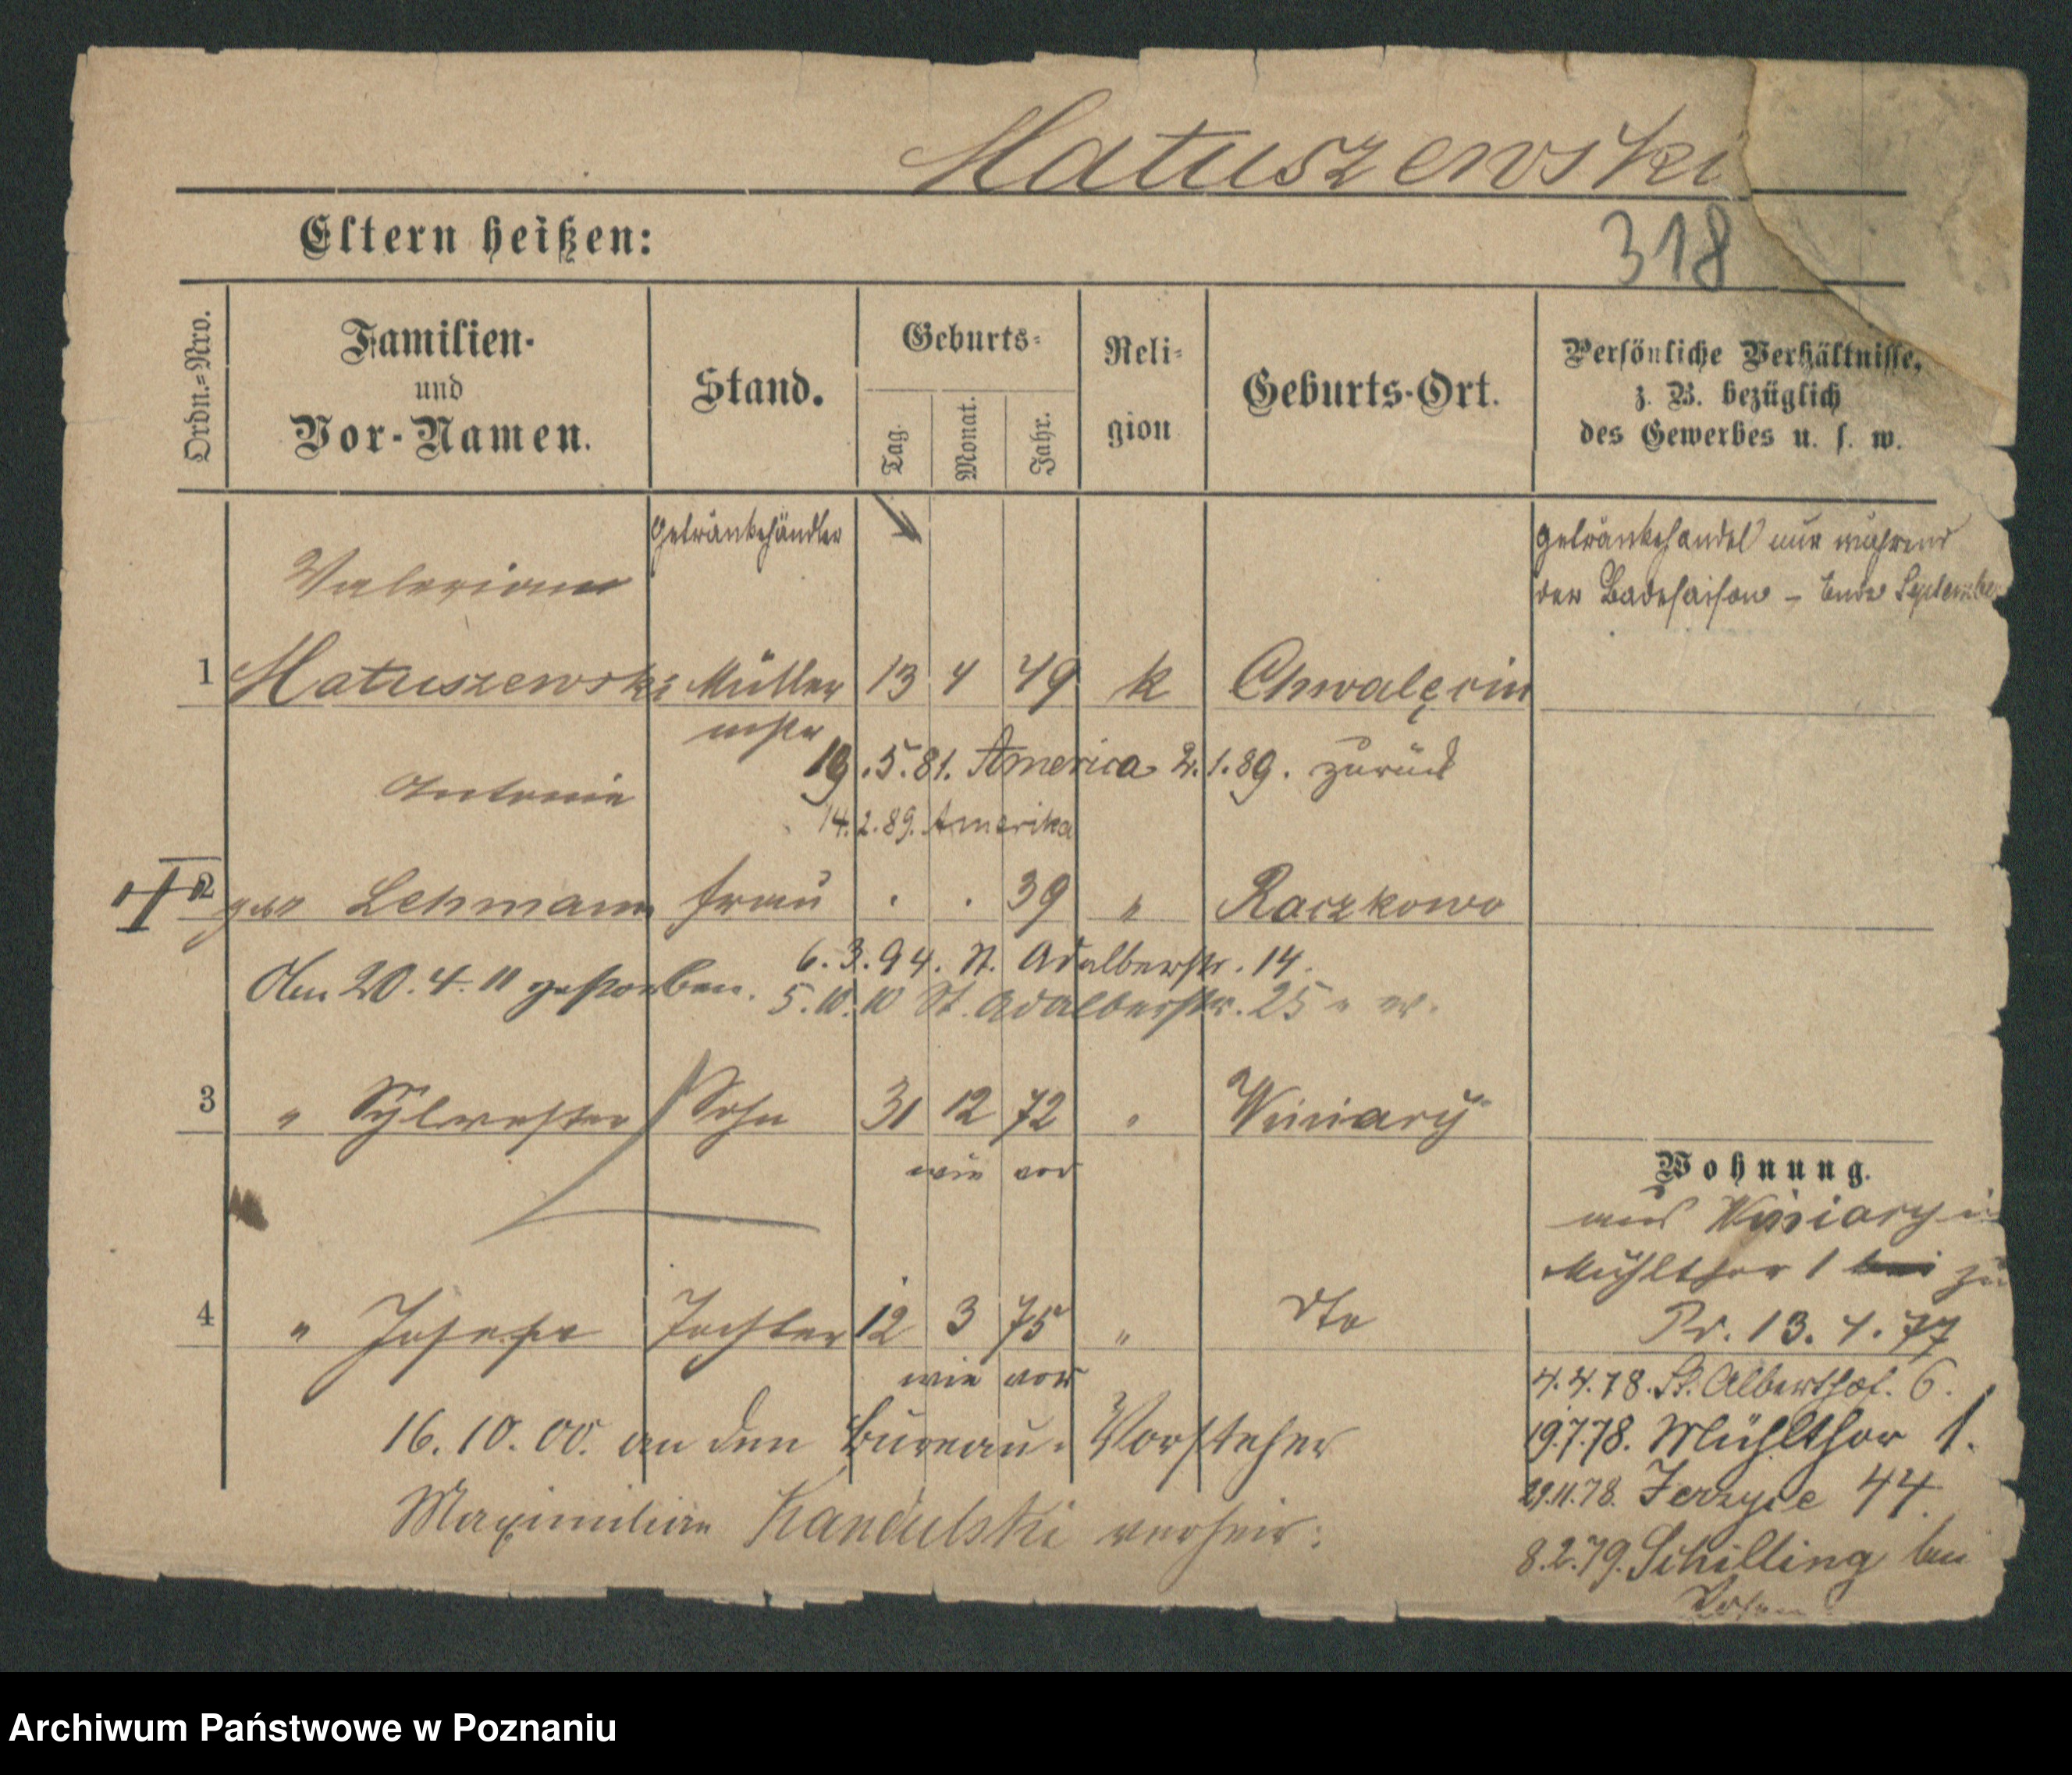 Matuszewski
318
Eltern heißen:
Ordn.=Nro.
Familien-
und
Vor-Namen.
Stand.
Geburts-
Tag.
Monat.
Jahr.
Reli-
gion
Geburts-Ort.
Persönliche Verhältnisse,
z. B. bezüglich
des Gewerbes u. s. w.
Getränkehändler
Getränkehandel nur während
der Badesaison – Ende September
Valerian
1 Matuszewski Müller 13 4 49 k Chwalęcin
mstr
19.5.81. America 2.1.89. zurück
Antonie
14.2.89. Amerika
2 geb Lehmann Frau . . 39 " Raczkowo
6.3.94. St. Adalbertstr. 14.
Am 20.4.11 gestorben. 5.10.10 St. Adalbertstr. 25
3 " Sylvester Sohn 31 12 72 " Winiary
wie vor
Wohnung.
aus Winiary
Mühlthor 1 zu
4 " Josefa Tochter 12 3 75 " dto
Pr. 13.4.77
wie vor
4.4.78. St. Alberthof. 6.
16.10.00. an den Bureau-Vorsteher
19.7.78. Mühlthor 1.
Maximilian Kandulski verheir:
29.11.78. Jerzyce 44.
8.2.79. Schilling bei
Posen
Archiwum Państwowe w Poznaniu